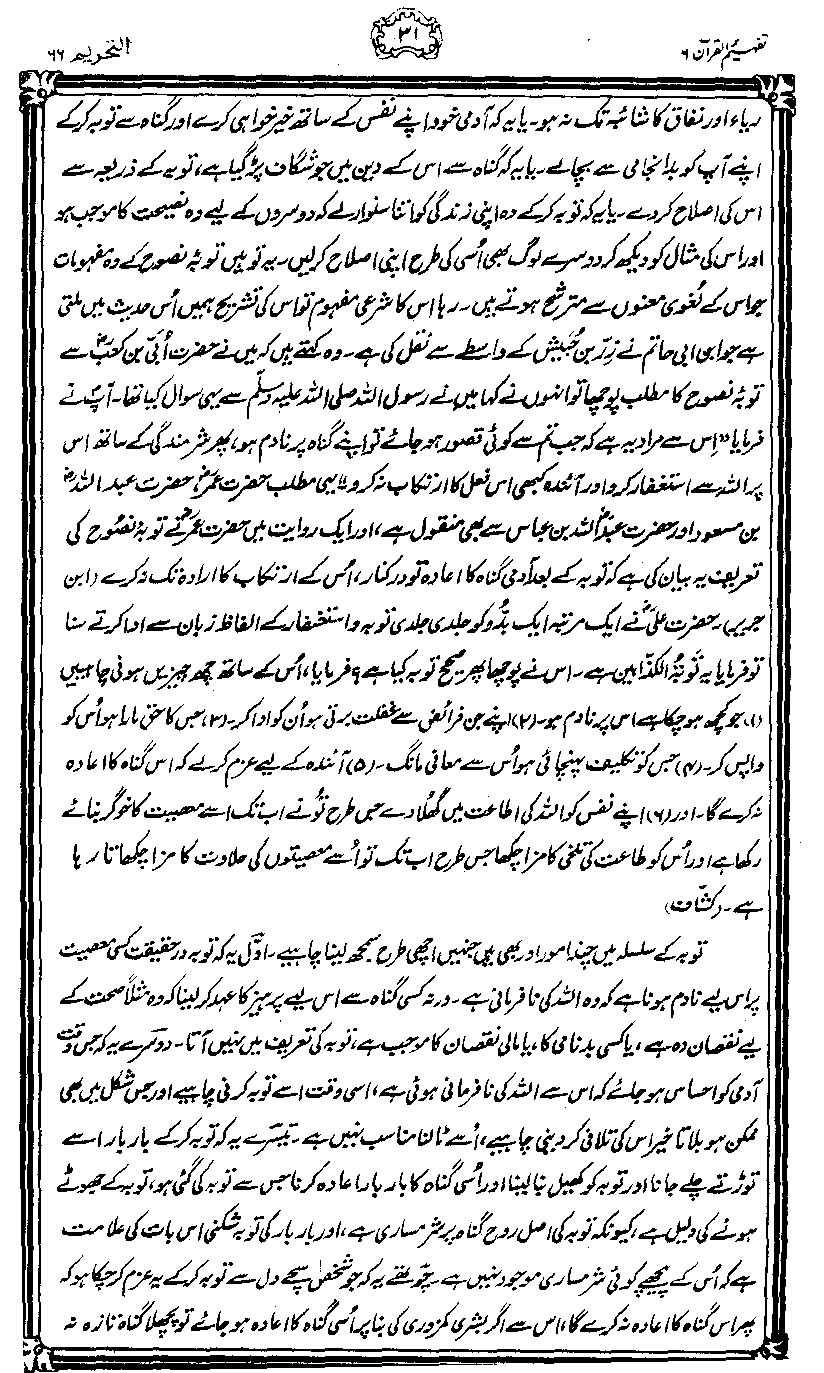 تفہیم القرآن ۶
۳۱
التحریم ۶۶
ریاء اور نفاق کا شائبہ تک نہ ہو۔ یا یہ کہ آدمی خود اپنے نفس کے ساتھ خیر خواہی کرے اور گناہ سے توبہ کر کے
اپنے آپ کو بد انجامی سے بچالے۔ یا یہ کہ گناہ سے اس کے دین میں جو شگاف پڑ گیا ہے، توبہ کے ذریعہ سے
اس کی اصلاح کر دے۔ یا یہ کہ توبہ کر کے وہ اپنی زندگی کو اتنا سنوار لے کہ دوسروں کے لیے وہ نصیحت کا موجب ہو
اور اس کی مثال کو دیکھ کر دوسرے لوگ بھی اُسی کی طرح اپنی اصلاح کرلیں۔ یہ تو ہیں توبۂ نصوح کے وہ مفہومات
جو اس کے لُغوی معنوں سے مترشح ہوتے ہیں۔ رہا اس کا شرعی مفہوم تو اس کی تشریح ہمیں اُس حدیث میں ملتی
ہے جو ابن ابی حاتم نے زِرّ بن حُبَیش کے واسطے سے نقل کی ہے۔ وہ کہتے ہیں کہ میں نے حضرت اُبَیّ بن کعبؓ سے
توبۂ نصوح کا مطلب پوچھا تو انہوں نے کہا میں نے رسول اللہ صلی اللہ علیہ وسلّم سے یہی سوال کیا تھا۔ آپؐ نے
فرمایا ”اِس سے مراد یہ ہے کہ جب تم سے کوئی قصور ہو جائے تو اپنے گناہ پر نادم ہو، پھر شرمندگی کے ساتھ اس
پر اللہ سے استغفار کرو اور آئندہ کبھی اس فعل کا ارتکاب نہ کرو“ یہی مطلب حضرت عمرؓ، حضرت عبد اللہؓ
بن مسعود اور حضرت عبداللہؓ بن عباس سے بھی منقول ہے، اور ایک روایت میں حضرت عمرؓ نے توبۂ نصُوح کی
تعریف یہ بیان کی ہے کہ توبہ کے بعد آدمی گناہ کا اعادہ تو درکنار، اُس کے ارتکاب کا ارادہ تک نہ کرے (ابن
جریر)۔ حضرت علیؓ نے ایک مرتبہ ایک بدُّو کو جلدی جلدی توبہ و استغفار کے الفاظ زبان سے ادا کرتے سنا
تو فرمایا یہ تَوبَۃُ الکَذّابین ہے۔ اس نے پوچھا پھر صحیح توبہ کیا ہے؟ فرمایا، اُس کے ساتھ چھ چیزیں ہونی چاہییں
(۱) جو کچھ ہو چکا ہے اس پر نادم ہو۔ (۲) اپنے جن فرائض سے غفلت برتی ہو ان کو ادا کر۔ (۳) جس کا حق مارا ہو اُس کو
واپس کر۔ (۴) جس کو تکلیف پہنچائی ہو اُس سے معافی مانگ۔ (۵) آئندہ کے لیے عزم کرلے کہ اس گناہ کا اعادہ
نہ کرے گا۔ اور (۶) اپنے نفس کو اللہ کی اطاعت میں گھُلا دے جس طرح تُو نے اب تک اسے معصیت کا خوگر بنائے
رکھا ہے اور اُس کو طاعت کی تلخی کا مزا چکھا جس طرح اب تک تو اُسے معصیتوں کی حلاوت کا مزا چکھاتا رہا
ہے۔ (کشّاف)
توبہ کے سلسلہ میں چند امور اور بھی ہیں جنہیں اچھی طرح سمجھ لینا چاہیے۔ اوّل یہ کہ توبہ درحقیقت کسی معصیت
پر اس لیے نادم ہونا ہے کہ وہ اللہ کی نافرمانی ہے۔ ورنہ کسی گناہ سے اس لیے پرہیز کا عہد کر لینا کہ وہ مثلاً صحت کے
لیے نقصان دہ ہے، یا کسی بدنامی کا، یا مالی نقصان کا موجب ہے، توبہ کی تعریف میں نہیں آتا۔ دوسرے یہ کہ جس وقت
آدمی کو احساس ہو جائے کہ اس سے اللہ کی نافرمانی ہوئی ہے، اسی وقت اسے توبہ کرنی چاہیے اور جس شکل میں بھی
ممکن ہو بلا تاخیر اس کی تلافی کر دینی چاہیے، اُسے ٹالنا مناسب نہیں ہے۔ تیسرے یہ کہ توبہ کر کے بار بار اسے
توڑتے چلے جانا اور توبہ کو کھیل بنا لینا اور اُسی گناہ کا بار بار اعادہ کرنا جس سے توبہ کی گئی ہو، توبہ کے جھوٹے
ہونے کی دلیل ہے، کیونکہ توبہ کی اصل روح گناہ پر شرمساری ہے، اور بار بار کی توبہ شکنی اس بات کی علامت
ہے کہ اُس کے پیچھے کوئی شرمساری موجود نہیں ہے۔ چوتھے یہ کہ جو شخص سچے دل سے توبہ کر کے یہ عزم کر چکا ہو کہ
پھر اس گناہ کا اعادہ نہ کرے گا، اس سے اگر بشری کمزوری کی بنا پر اُسی گناہ کا اعادہ ہو جائے تو پچھلا گناہ تازہ نہ